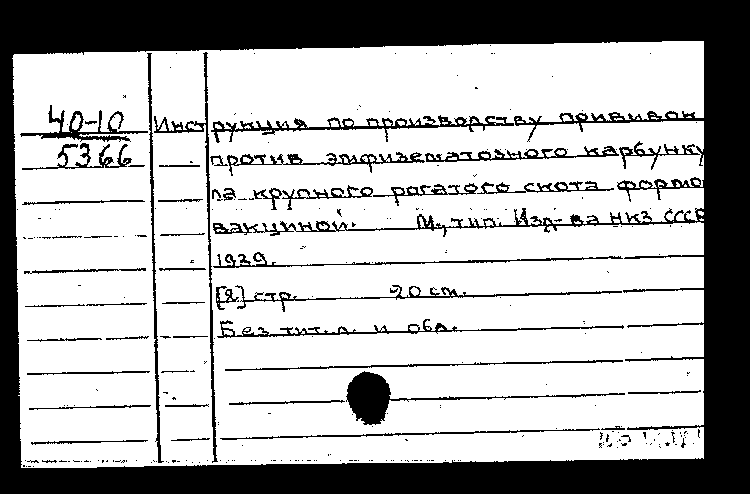 40-10
5366
Инструкция по производству прививок
против эмфизематозного карбунку
ла крупного рогатого скота формо
вакциной. М., тип. Изд-ва НКЗ СССР
1939.
[2] стр. 20 см.
Без тит. л. и обл.